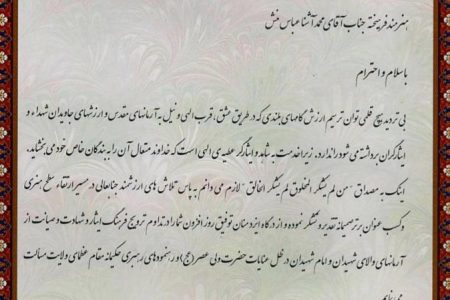 هنرمند فریخته جناب آقای محمد آشنا عباس منش
باسلام و احترام
بی تردید هیچ قلمی توان ترسیم ارزش گامهای بلندی که در طریق عشق، قرب الهی و نیل به آرمانهای مقدس و ارزشهای جاویدان شهداء و
ایثارگران برداشته می شود را ندارد، زیرا خدمت به شاهد و ایثارگر عطیه ی الهی است که خداوند متعال آن را به بندگان خاص خود می بخشاید.
اینک به مصداق "من لم یشکر المخلوق لم یشکر الخالق" لازم می دانم به پاس تلاش های ارزشمند جنابعالی در مسیر ارتقاء سطح هنری
و کسب عنوان برتر صمیمانه تقدیر و تشکر نموده و از درگاه ایزد منان توفیق روز افزون شما را در تداوم ترویج فرهنگ ایثار و شهادت و صیانت از
آرمانهای والای شهیدان و امام شهیدان در ظل عنایات حضرت ولی عصر (عج) و رهنمودهای رهبری حکیمانه مقام عظمای ولایت مسالت